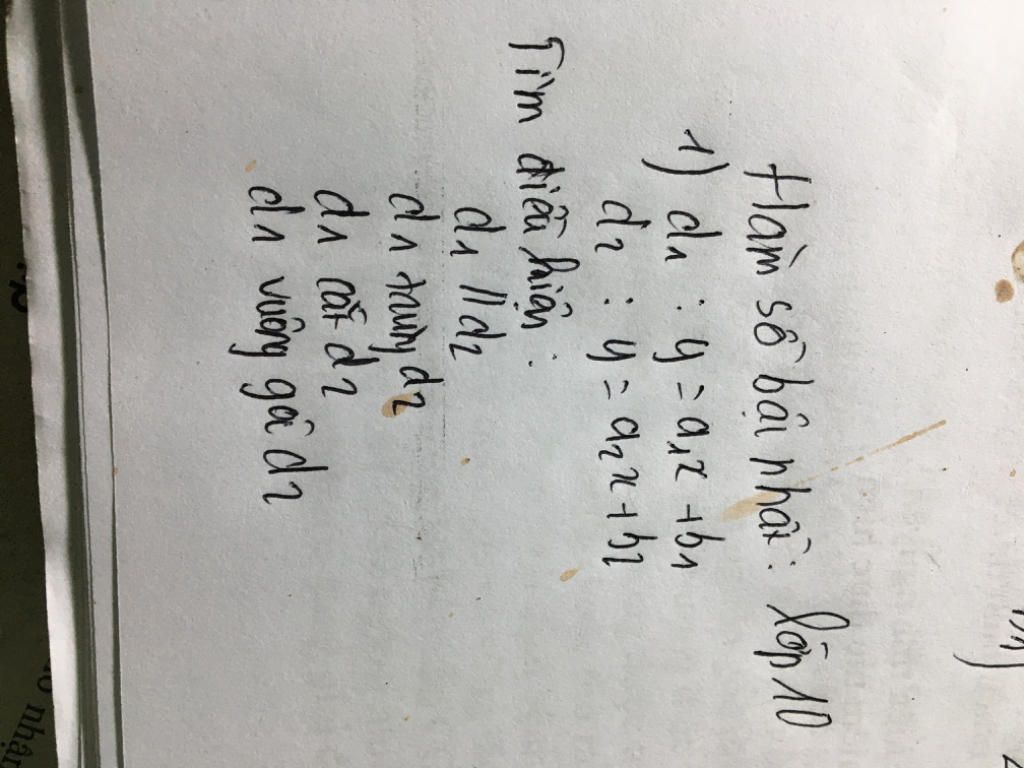 Hàm số bậi nhất: lớp 10
1) d1 : y = a1x + b1
d2 : y = a2x + b2
Tìm điều kiện :
d1 // d2
d1 trùng d2
d1 cắt d2
d1 vuông gó d2